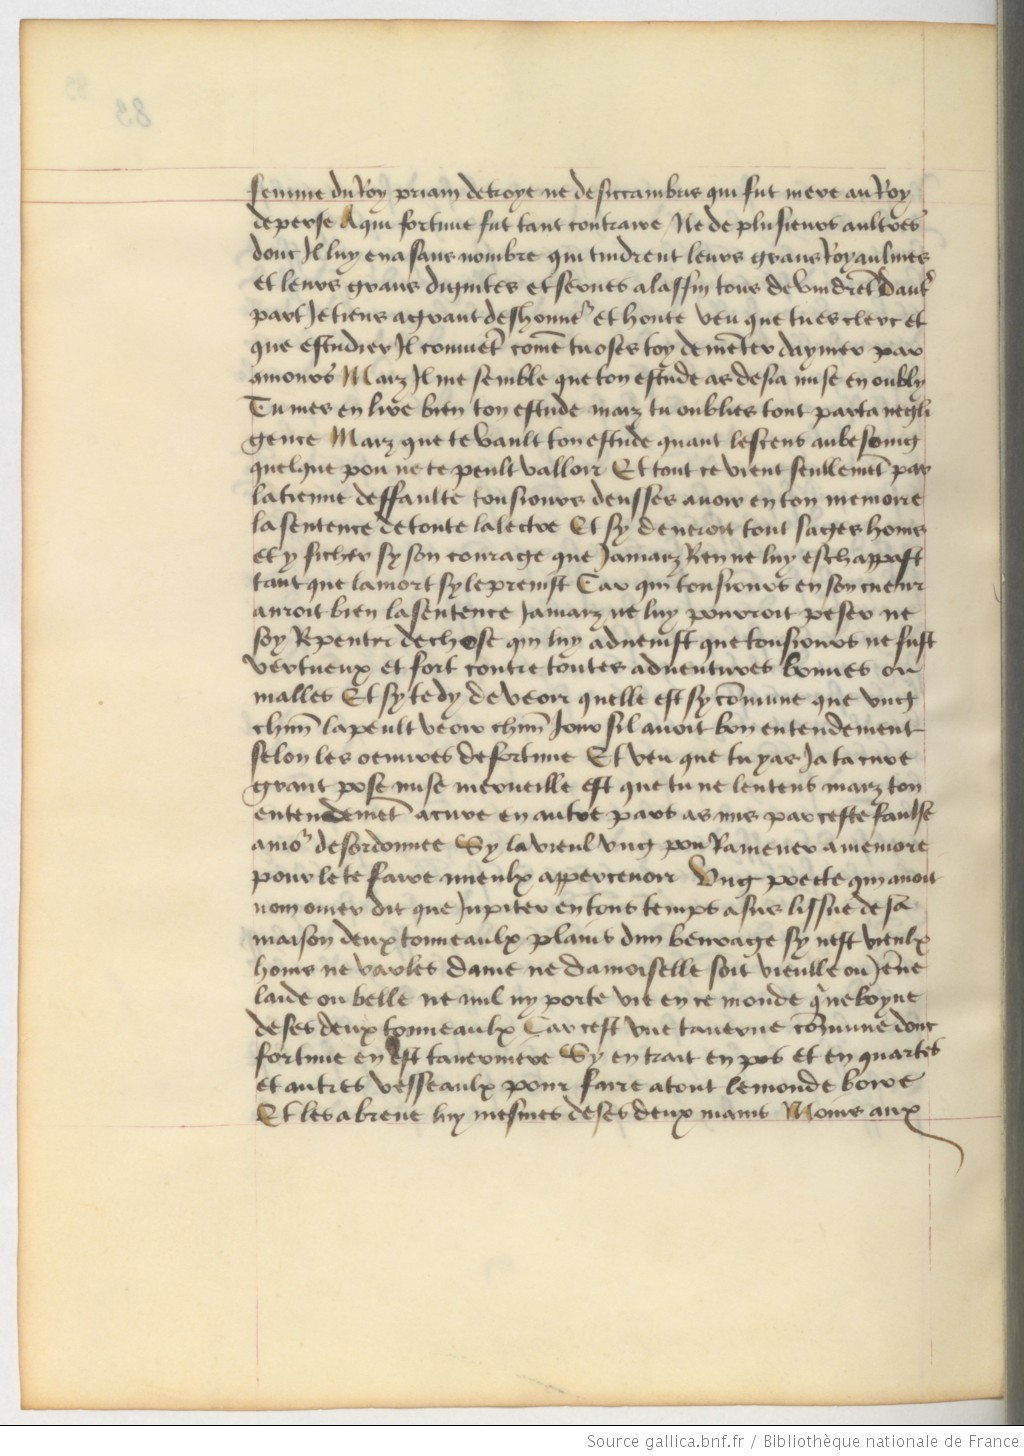 femme du Roy priam de troye ne de siccambris qui fut mere au Roy
de perse A qui fortune fut tant contraire Ne de plusieurs aultres
dont Il luy en a sans nombre qui tindrent leurs grans Royaulmes
et leurs grans dignites et serves a la ffin tous devindrēt Daut'
part Je tiens a grant deshonne' et honte veu que tu es clerc et
que estudier Il convīet cōme tu oses toy demēter daymer par
amours Marz Il me semble que ton estude as desia mise en oubly
Tu mes en livre bien ton estude marz tu oublies tout par ta negli
gence Marz que te vault ton estude quant le scens au besoing
quelque pou ne te peult valloir Et tout ce vient seullemēt par
la tienne deffaulte tousiours deusses avoir en ton memoire
la sentence de toute la lectre Et sy deveroit tout sages homs
et y ficher sy son courage que Jamarz Ren ne luy eschappast
tant que la mort sy le prenist Car qui tousiours en son cueur
auroit bien la sentence Jamarz ne luy pourroit peser ne
soy Repentir de chose qui luy advenist que tousiours ne fust
vertueux et fort contre toutes adventures bonnes ou
malles Et sy te dy de veoir quelle est sy cōmune que ung
chūn la peult veoir chūn Jour sil avoit bon entendement
selon les oeuvres de fortune Et veu que tu y as Ja ta cure
grant pose mise merveille est que tu ne lentens marz ton
entendemēt a cure en autre pars as mis par ceste faulse
amo' desordonnee Sy la vieul ung pou Ramener a memore
pour le te faire mieulx appercevoir Ung poette qui avoit
nom omer dit que Jupiter en tous temps a sus lissue de sa
maison deux tonneaulx plains dun bevrage sy nest vieulx
homs ne varles dame ne damoiselle soit vieulle ou Jēne
laide ou belle ne nul ny porte vie en ce monde que boyve
de ses deux tonneaulx Car cest une taverne cōmune dont
fortune en est taverniere Sy en trait en pos et en quartes
et autres vesseaulx pour faire a tout le monde boire
Et les abreve luy mesmes de ses deux mains Moins aux
Source gallica.bnf.fr / Bibliothèque nationale de France